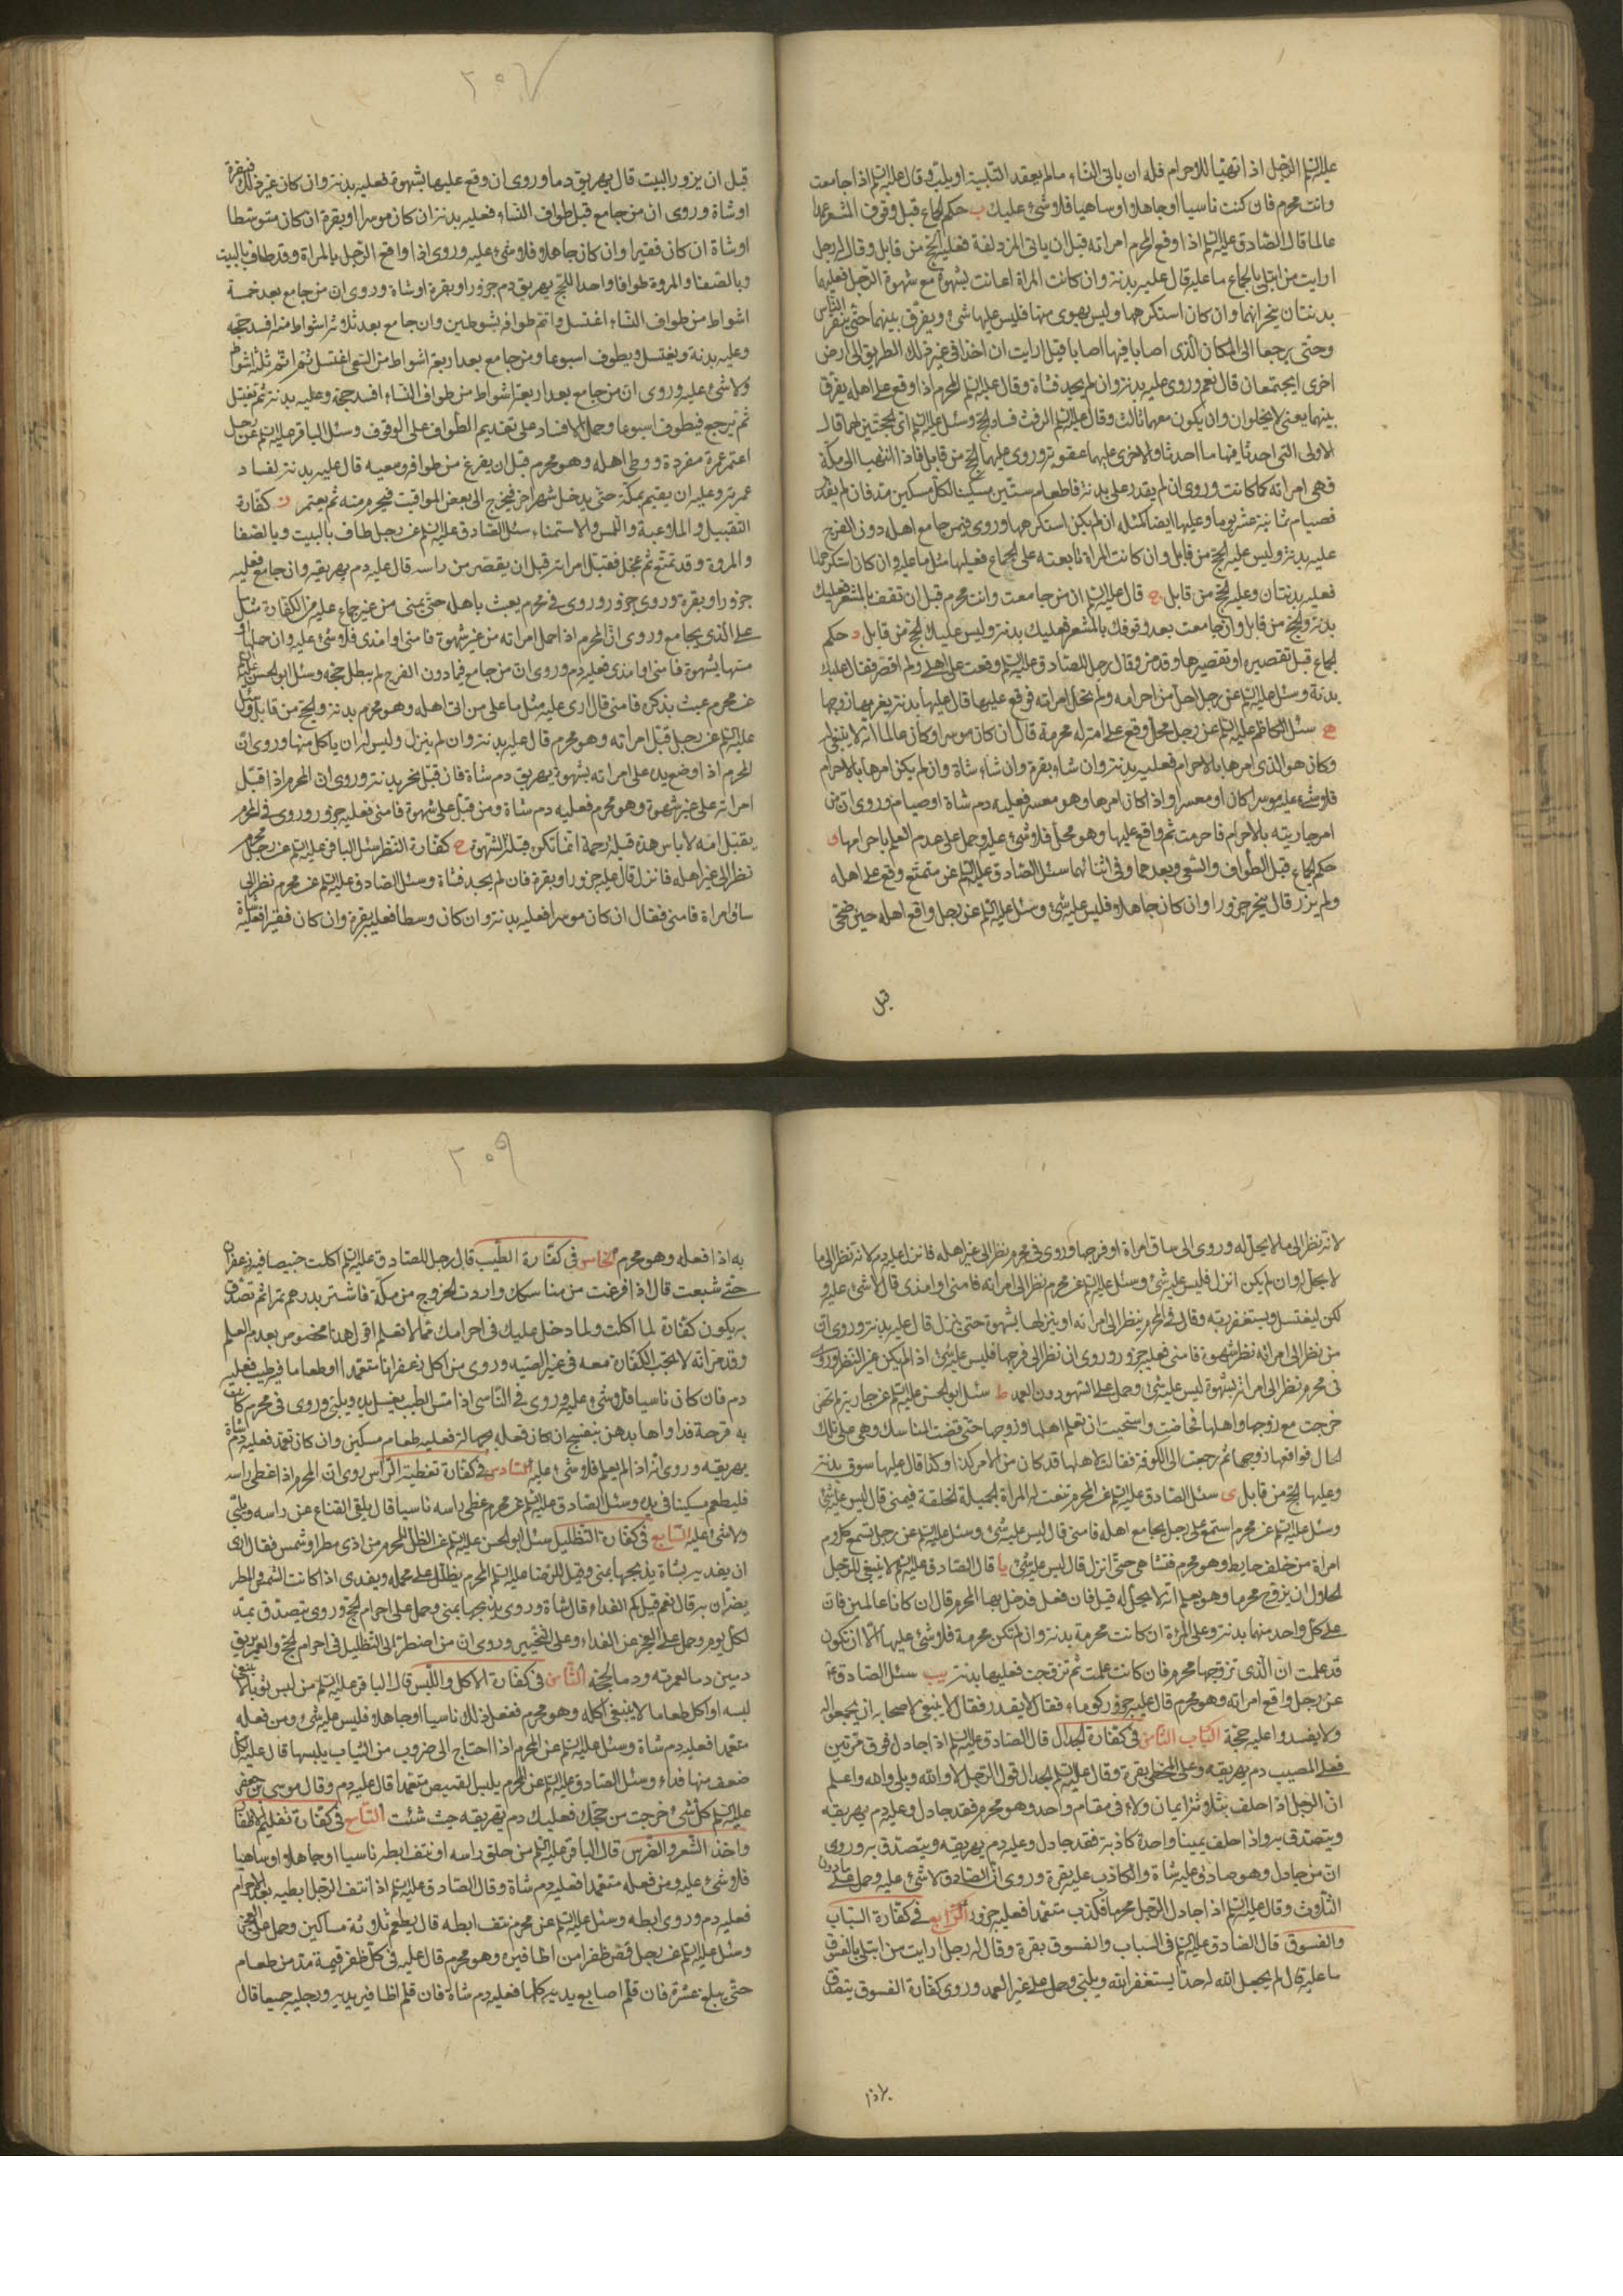 عليه السلم الرجل اذا تهيأ للاحرام فله ان ياتى النساء ما لم يعقد التلبية او يلب وقال عليه السلم اذا جامعت
وانت محرم فان كنت ناسيا او جاهلا او ساهيا فلا شئ عليك ب حكم الجماع قبل وقوف المشعر عمدا
عالما قال الصادق عليه السلم اذا وقع المحرم امراته قبل ان ياتى المزدلفة فعليه الحج من قابل وقال له رجل
ارايت من ابتلى بالجماع ما عليه قال عليه بدنة وان كانت المراة اعانت بشهوة مع شهوة الرجل فعليهما
بدنتان ينحرانهما وان كان استكرهها وليس بهوى منها فليس عليها شئ ويفرق بينهما حتى ينفر الناس
وحتى يرجعا الى المكان الذى اصابا فيها اصابا قيل ارايت ان اخذا فى غير ذلك الطريق الى ارض
اخرى ايجتمعان قال نعم وروى عليه بدنة وان لم يجد فشاة وقال عليه السلم المحرم اذا وقع على اهله يفرق
بينهما يعنى لا يخلوان وان يكون معهما ثالث وقال عليه السلم الرفث فساد الحج وسئل عليه السلم اى الحجتين لهما قال
الاولى التى احدثا فيها ما احدثا والاخرى عليهما عقوبة وروى عليهما الحج من قابل فاذا انتهيا الى مكة
فهى امراته كما كانت وروى ان لم يقدر على بدنة فاطعام ستين مسكينا لكل مسكين مد فان لم يقدر
فصيام ثمانية عشر يوما وعليها ايضا كمثله ان لم يكن استكرهها وروى فيمن جامع اهله دون الفرج
عليه بدنة وليس عليه الحج من قابل وان كانت المراة تابعته على الجماع فعليها مثل ما عليه وان كان استكرهها
فعليه بدنتان وعليه الحج من قابل ج قال عليه السلم ان من جامعت وانت محرم قبل ان تقف بالمشعر فعليك
بدنة والحج من قابل وان جامعت بعد وقوفك بالمشعر فعليك بدنة وليس عليك الحج من قابل د حكم
الجماع قبل تقصيره او تقصيرها وقد من وقال رجل للصادق عليه السلم وقعت على اهلى ولم اقصر فقال عليك
بدنة وسئل عليه السلم عن رجل احل من احرامه ولم تحل امراته فوقع عليها قال عليها بدنة يغرمها زوجها
ه سئل الكاظم عليه السلم عن رجل محل وقع على امة له محرمة قال ان كان موسرا وكان عالما انه لا ينبغى له
وكان هو الذى امرها بالاحرام فعليه بدنة وان شاء بقرة وان شاء شاة وان لم يكن امرها بالاحرام
فلا شئ عليه موسرا كان او معسرا واذا كان امرها وهو معسر فعليه دم شاة او صيام وروى ان من
امر جاريته بالاحرام فاحرمت ثم واقع عليها وهو محل فلا شئ عليه وحمل على عدم العلم باحرامها و
حكم الجماع قبل الطواف والسعى وبعدهما وفى اثنائهما سئل الصادق عليه السلم عن متمتع وقع على اهله
ولم يزر قال ينحر جزورا وان كان جاهلا فليس عليه شئ وسئل عليه السلم عن رجل واقع اهله حين ضحى
قبل
٢٠٧
قبل ان يزور البيت قال يهريق دما وروى ان وقع عليها بشهوة فعليه بدنة وان كان غير ذلك فبقرة
او شاة وروى ان من جامع قبل طواف النساء فعليه بدنة ان كان موسرا او بقرة ان كان متوسطا
او شاة ان كان فقيرا وان كان جاهلا فلا شئ عليه وروى اذا واقع الرجل بالمراة وقد طاف بالبيت
وبالصفا والمروة طوافا واحدا للحج يهريق دم جزور او بقرة او شاة وروى ان من جامع بعد خمسة
اشواط من طواف النساء اغتسل واتم طوافه بشوطين وان جامع بعد ثلثة اشواط منه افسد حجه
وعليه بدنة ويغتسل ويطوف اسبوعا ومن جامع بعد اربعة اشواط من السعى اغتسل ثم اتم ثلثة اشواط
ولا شئ عليه وروى ان من جامع بعد اربعة اشواط من طواف النساء افسد حجه وعليه بدنة ثم يغتسل
ثم يرجع فيطوف اسبوعا وحمل الافساد على تقديم الطواف على الوقوف وسئل الباقر عليه السلم عن رجل
اعتمر عمرة مفردة ووطى اهله وهو محرم قبل ان يفرغ من طوافه وسعيه قال عليه بدنة لفساد
عمرته وعليه ان يقيم بمكة حتى يدخل شهر اخر فيخرج الى بعض المواقيت فيحرم منه ثم يعتمر ز كفارة
التقبيل والملاعبة واللمس والاستمناء سئل الصادق عليه السلم عن رجل طاف بالبيت وبالصفا
والمروة وقد تمتع ثم عجل فقبل امراته قبل ان يقصر من راسه قال عليه دم يهريقه وان جامع فعليه
جزور او بقرة وروى جزور وروى فى محرم يعبث باهله حتى يمنى من غير جماع عليه من الكفارة مثل
على الذى يجامع وروى ان المحرم اذا حمل امراته من غير شهوة فامنى او امذى فلا شئ عليه وان حملها او
مسها بشهوة فامنى او امذى فعليه دم وروى ان من جامع فيما دون الفرج لم يبطل حجه وسئل ابو الحسن عليه السلم
عن محرم عبث بذكره فامنى قال ارى عليه مثل ما على من اتى اهله وهو محرم بدنة والحج من قابل وسئل
عليه السلم عن رجل قبل امراته وهو محرم قال عليه بدنة وان لم ينزل وليس له ان ياكل منها وروى ان
المحرم اذا وضع يده على امراته بشهوة يهريق دم شاة فان قبل نحر بدنة وروى ان المحرم اذا قبل
امراته على غير شهوة وهو محرم فعليه دم شاة ومن قبل على شهوة فامنى فعليه جزور وروى فى المحرم
يقبل امه لا باس هذه قبلة رحمة انما تكره قبلة الشهوة ح كفارة النظر سئل الباقر عليه السلم عن رجل محرم
نظر الى غير اهله فانزل قال عليه جزور او بقرة فان لم يجد فشاة وسئل الصادق عليه السلم عن محرم نظر الى
ساق امراة فامنى فقال ان كان موسرا فعليه بدنة وان كان وسطا فعليه بقرة وان كان فقيرا فعليه شاة
لانه نظر الى ما لا يحل له وروى الى ساق امراة او فرجها وروى فى محرم نظر الى غير اهله فانزل عليه دم لانه نظر الى ما
لا يحل له وان لم يكن انزل فليس عليه شئ وسئل عليه السلم عن محرم نظر الى امراته فامنى او امذى قال لا شئ عليه و
لكن ليغتسل ويستغفر ربه وقال فى المحرم ينظر الى امراته او ينزلها بشهوة حتى ينزل قال عليه بدنة وروى ان
من نظر الى امراته نظر شهوة فامنى فعليه جزور وروى ان نظر الى فرجها فليس عليه شئ اذا لم يكن غير النظر وروى
فى محرم نظر الى امراته بشهوة ليس عليه شئ وحمل على السهو دون العمد ط سئل ابو الحسن عليه السلم عن جارية لم تحض
خرجت مع زوجها واهلها فحاضت واستحيت ان تعلم اهلها وزوجها حتى قضت المناسك وهى على تلك
الحال فواقعها زوجها ثم رجعت الى الكوفة فقالت لاهلها قد كان من الامر كذا وكذا قال عليها سوق بدنة
وعليها الحج من قابل ى سئل الصادق عليه السلم عن المحرم تنعت له المراة الجميلة الخلقة فيمنى قال ليس عليه شئ
وسئل عليه السلم عن محرم استمع على رجل يجامع اهله فامنى قال ليس عليه شئ وسئل عليه السلم عن رجل تسمع كلام
امراة من خلف حايط وهو محرم فتشاهى حتى انزل قال ليس عليه شئ يا قال الصادق عليه السلم لا ينبغى للرجل
الحلال ان يزوج محرما وهو يعلم انه لا يحل له قيل فان فعل فدخل بها المحرم قال ان كانا عالمين فان
على كل واحد منهما بدنة وعلى المراة ان كانت محرمة بدنة وان لم تكن محرمة فلا شئ عليها الا ان تكون
قد علمت ان الذى تزوجها محرم فان كانت علمت ثم تزوجت فعليها بدنة يب سئل الصادق ع
عن رجل واقع امراته وهو محرم قال عليه جزور كوماء فقال لا يقدر فقال لا ينبغى لاصحابه ان يجمعوا له
ولا يفسدوا عليه حجه الباب الثامن فى كفارة الجدال قال الصادق عليه السلم اذا جادل فوق مرتين
فعلى المصيب دم يهريقه وعلى المخطى بقرة وقال عليه السلم الجدال قول الرجل لا والله وبلى والله واعلم
ان الرجل اذا حلف بثلاثة ايمان ولاء فى مقام واحد وهو محرم فقد جادل وعليه دم يهريقه
ويتصدق به واذا حلف يمينا واحدة كاذبة فقد جادل وعليه دم يهريقه ويتصدق به وروى
ان من جادل وهو صادق عليه شاة والكاذب عليه بقرة وروى ان الصادق لا شئ عليه وحمل على ما دون
الثلاث وقال عليه السلم اذا جادل الرجل محرما فكذب متعمدا فعليه جزور الرابع فى كفارة السباب
والفسوق قال الصادق عليه السلم فى السباب والفسوق بقرة وقال له رجل ارايت من ابتلى بالفسوق
ما عليه قال لم يجعل الله له حدا يستغفر الله ويلبى وحمل على غير العمد وروى كفارة الفسوق يتصدق
به اذا
٢٠٩
به اذا فعله وهو محرم الخامس فى كفارة الطيب قال رجل للصادق عليه السلم اكلت خبيصا فيه زعفران
حتى شبعت قال اذا فرغت من مناسكك واردت الخروج من مكة فاشتر بدرهم تمرا ثم تصدق
به يكون كفارة لما اكلت ولما دخل عليك فى احرامك مما لا تعلم اقول هذا مخصوص بعدم العلم
وقد مر انه لا تجب الكفارة معه فى غير الصيد وروى من اكل زعفرانا متعمدا او طعاما فيه طيب فعليه
دم فان كان ناسيا فلا شئ عليه وروى فى الناسى اذا مس الطيب يغسل يده ويلبى وروى فى محرم كانت
به قرحة فداواها بدهن بنفسج ان كان فعله بجهالة فعليه طعام مسكين وان كان تعمد فعليه دم شاة
يهريقه وروى انه اذا لم يعلم فلا شئ عليه السادس فى كفارة تغطية الراس روى ان المحرم اذا غطى راسه
فليطعم مسكينا فى يده وسئل الصادق عليه السلم عن محرم غطى راسه ناسيا قال يلقى القناع عن راسه ويلبى
ولا شئ عليه السابع فى كفارة التظليل سئل ابو الحسن عليه السلم عن الظل للمحرم من اذى مطر او شمس فقال ارى
ان يفديه بشاة يذبحها بمنى وقيل للرضا عليه السلم المحرم يظلل على محمله ويفدى اذا كانت الشمس والمطر
يضران به قال نعم قيل كم الفداء قال شاة وروى يذبحها بمنى وحمل على احرام الحج وروى يتصدق بمد
لكل يوم وحمل على العجز عن الفداء وعلى التخيير وروى ان من اضطر الى التظليل فى احرام الحج والعمرة يريق
دمين دما لعمرته ودما لحجه الثامن فى كفارة الاكل واللبس قال الباقر عليه السلم من لبس ثوبا لا ينبغى
لبسه او اكل طعاما لا ينبغى اكله وهو محرم ففعل ذلك ناسيا او جاهلا فليس عليه شئ ومن فعله
متعمدا فعليه دم شاة وسئل عليه السلم عن المحرم اذا احتاج الى ضروب من الثياب يلبسها قال عليه لكل
صنف منها فداء وسئل الصادق عليه السلم عن المحرم يلبس القميص متعمدا قال عليه دم وقال موسى بن جعفر
عليه السلم كل شئ خرجت من حجك فعليك دم تهريقه حيث شئت التاسع فى كفارة تقليم الاظفار
واخذ الشعر والضرس قال الباقر عليه السلم من حلق راسه او نتف ابطه ناسيا او جاهلا او ساهيا
فلا شئ عليه ومن فعله متعمدا فعليه دم شاة وقال الصادق عليه السلم اذا نتف الرجل ابطيه بعد الاحرام
فعليه دم وروى ابطه وسئل عليه السلم عن محرم نتف ابطه قال يطعم ثلاثة مساكين وحمل على العجز
وسئل عليه السلم عن رجل قص ظفرا من اظافيره وهو محرم قال عليه فى كل ظفر قيمة مد من طعام
حتى يبلغ عشرة فان قلم اصابع يديه كلها فعليه دم شاة فان قلم اظافير يديه ورجليه جميعا قال